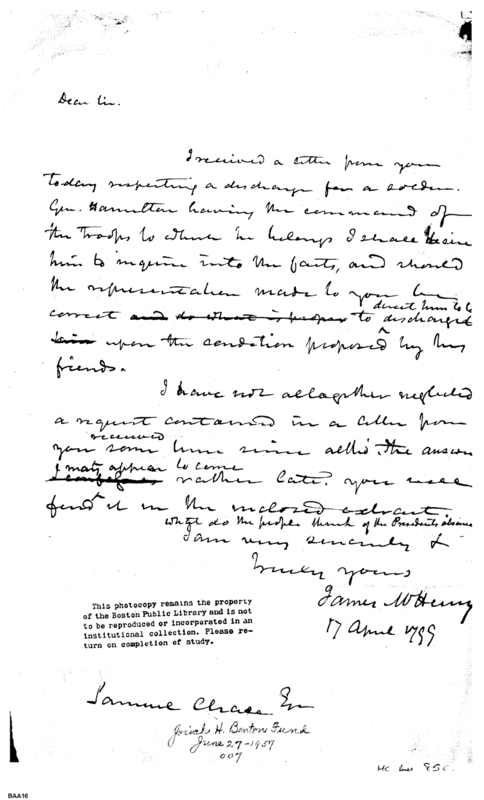 Dear Sir.
I received a letter from you
today respecting a discharge for a soldier.
Gen. Hamilton having the command of
the troops to which he belongs I shall desire
him to inquire into the facts, and should
the representation made to you be
direct him to be
correct and do what is proper to discharged
him upon the condition proposed by his
friends.
I have not altogether neglected
a request contained in a letter from
received
you some time since altho' the answer
may appear to come
rather late. you will
find it in the inclosed extract.
What do the people think of the Presidents absence
I am very sincerely &
truly yours
James McHenry
17 April 1799
This photocopy remains the property
of the Boston Public Library and is not
to be reproduced or incorporated in an
institutional collection. Please re-
turn on completion of study.
Samuel Chase Esq
Josiah H. Benton Fund
June 27-1957
007
BAA16